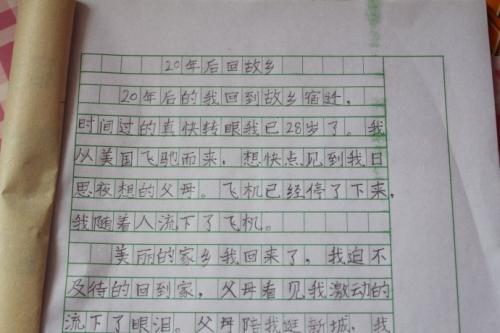 20年后回故乡
20年后的我回到故乡宿迁，
时间过的真快转眼我已28岁了。我
从美国飞驰而来，想快点见到我日
思夜想的父母。飞机已经停了下来，
我随着人流下了飞机。
美丽的家乡我回来了，我迫不
及待的回到家，父母看见我激动的
流下了眼泪。父母陪我逛新城，我